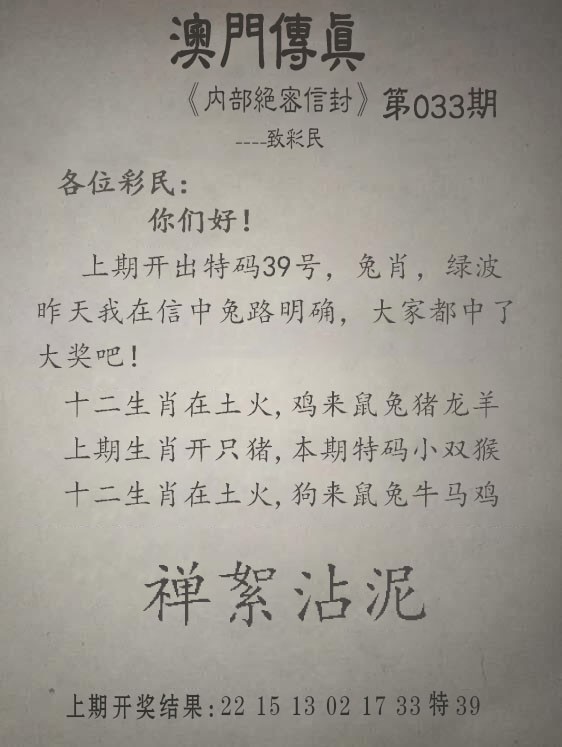 澳門傳眞
《内部絕密信封》第033期
----致彩民
各位彩民：
你们好！
上期开出特码39号，兔肖，绿波
昨天我在信中兔路明确，大家都中了
大奖吧！
十二生肖在土火,鸡来鼠兔猪龙羊
上期生肖开只猪,本期特码小双猴
十二生肖在土火,狗来鼠兔牛马鸡
禅絮沾泥
上期开奖结果:22 15 13 02 17 33 特 39